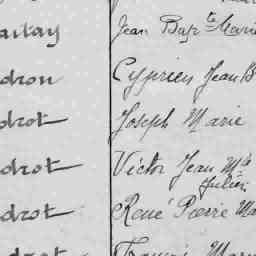 aitay Jean Bap.te Marie
dron Cyprien Jean B
drot Joseph Marie
drot Victor Jean M.ie
Julien
drot René Pierre Ma
drot Francis Marie